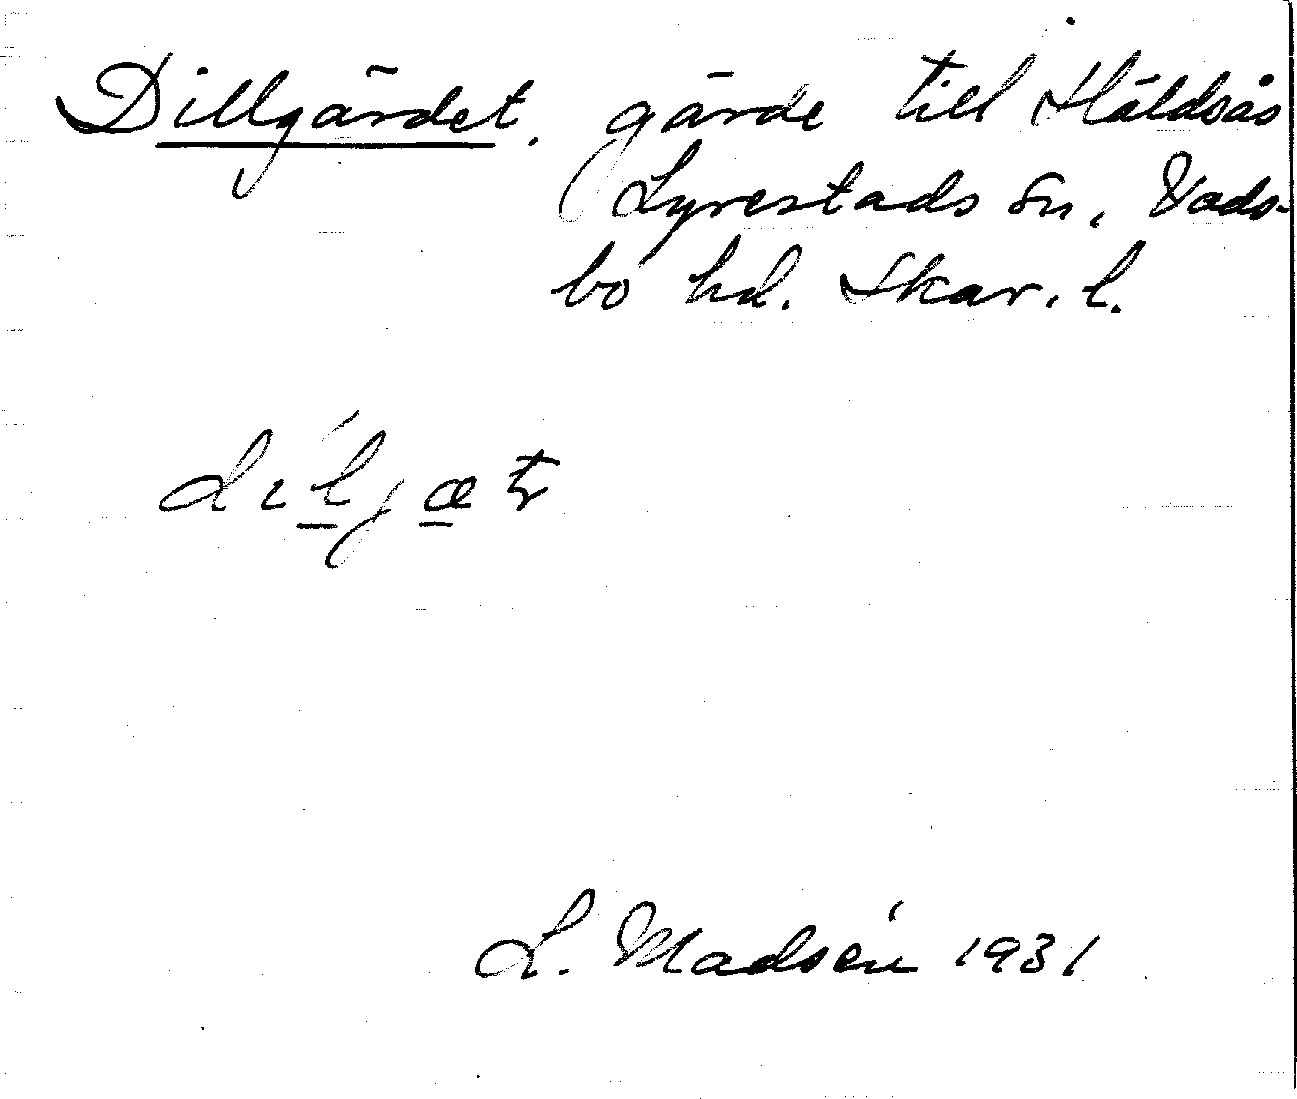 Dillgärdet. gärde till Håldsås
Lyrestads sn, Vads-
bo hd. Skar. l.
L. Madsén 1931